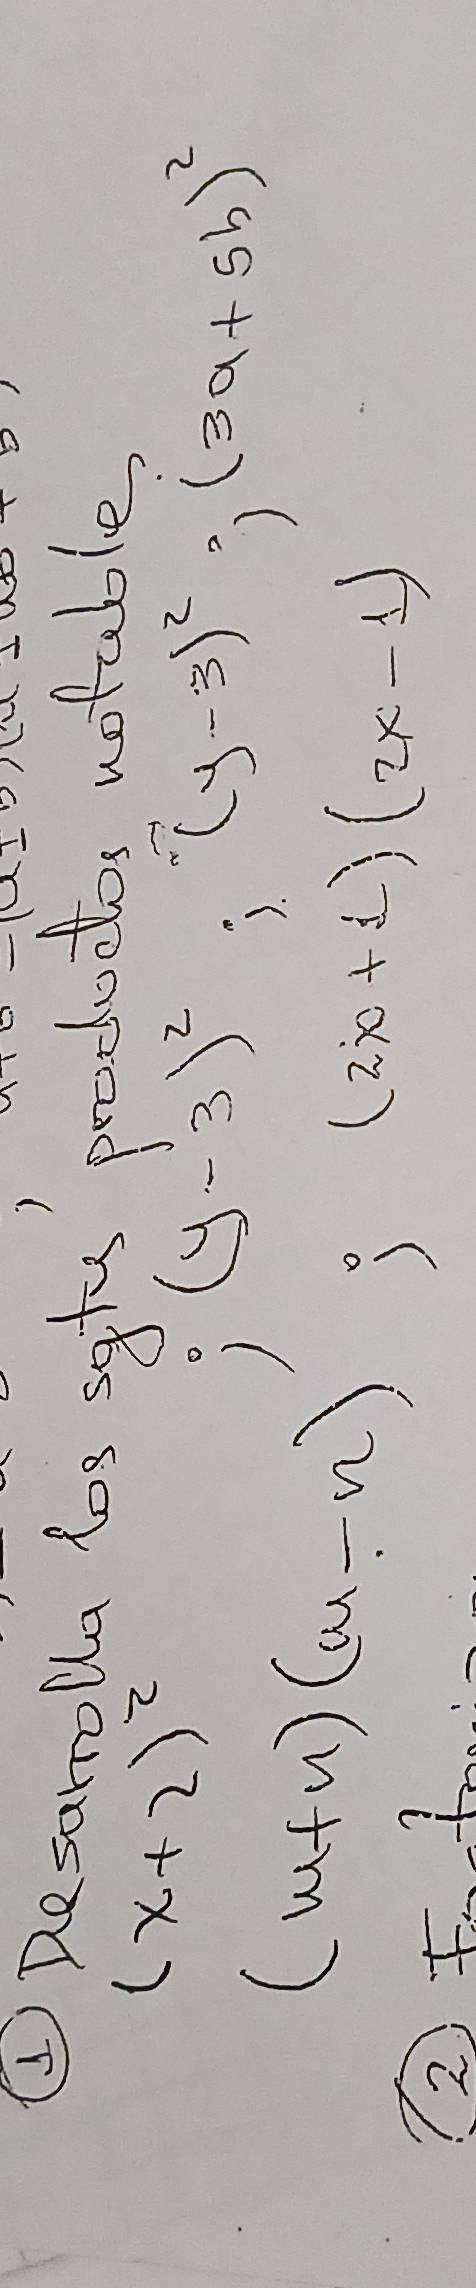 ① Desarrolla los sgts productos notables
(x+2)² ; (y-3)² ; (y-3)² ; (3a+5b)²
(m+n)(m-n) ; (2x+1)(2x-1)
②